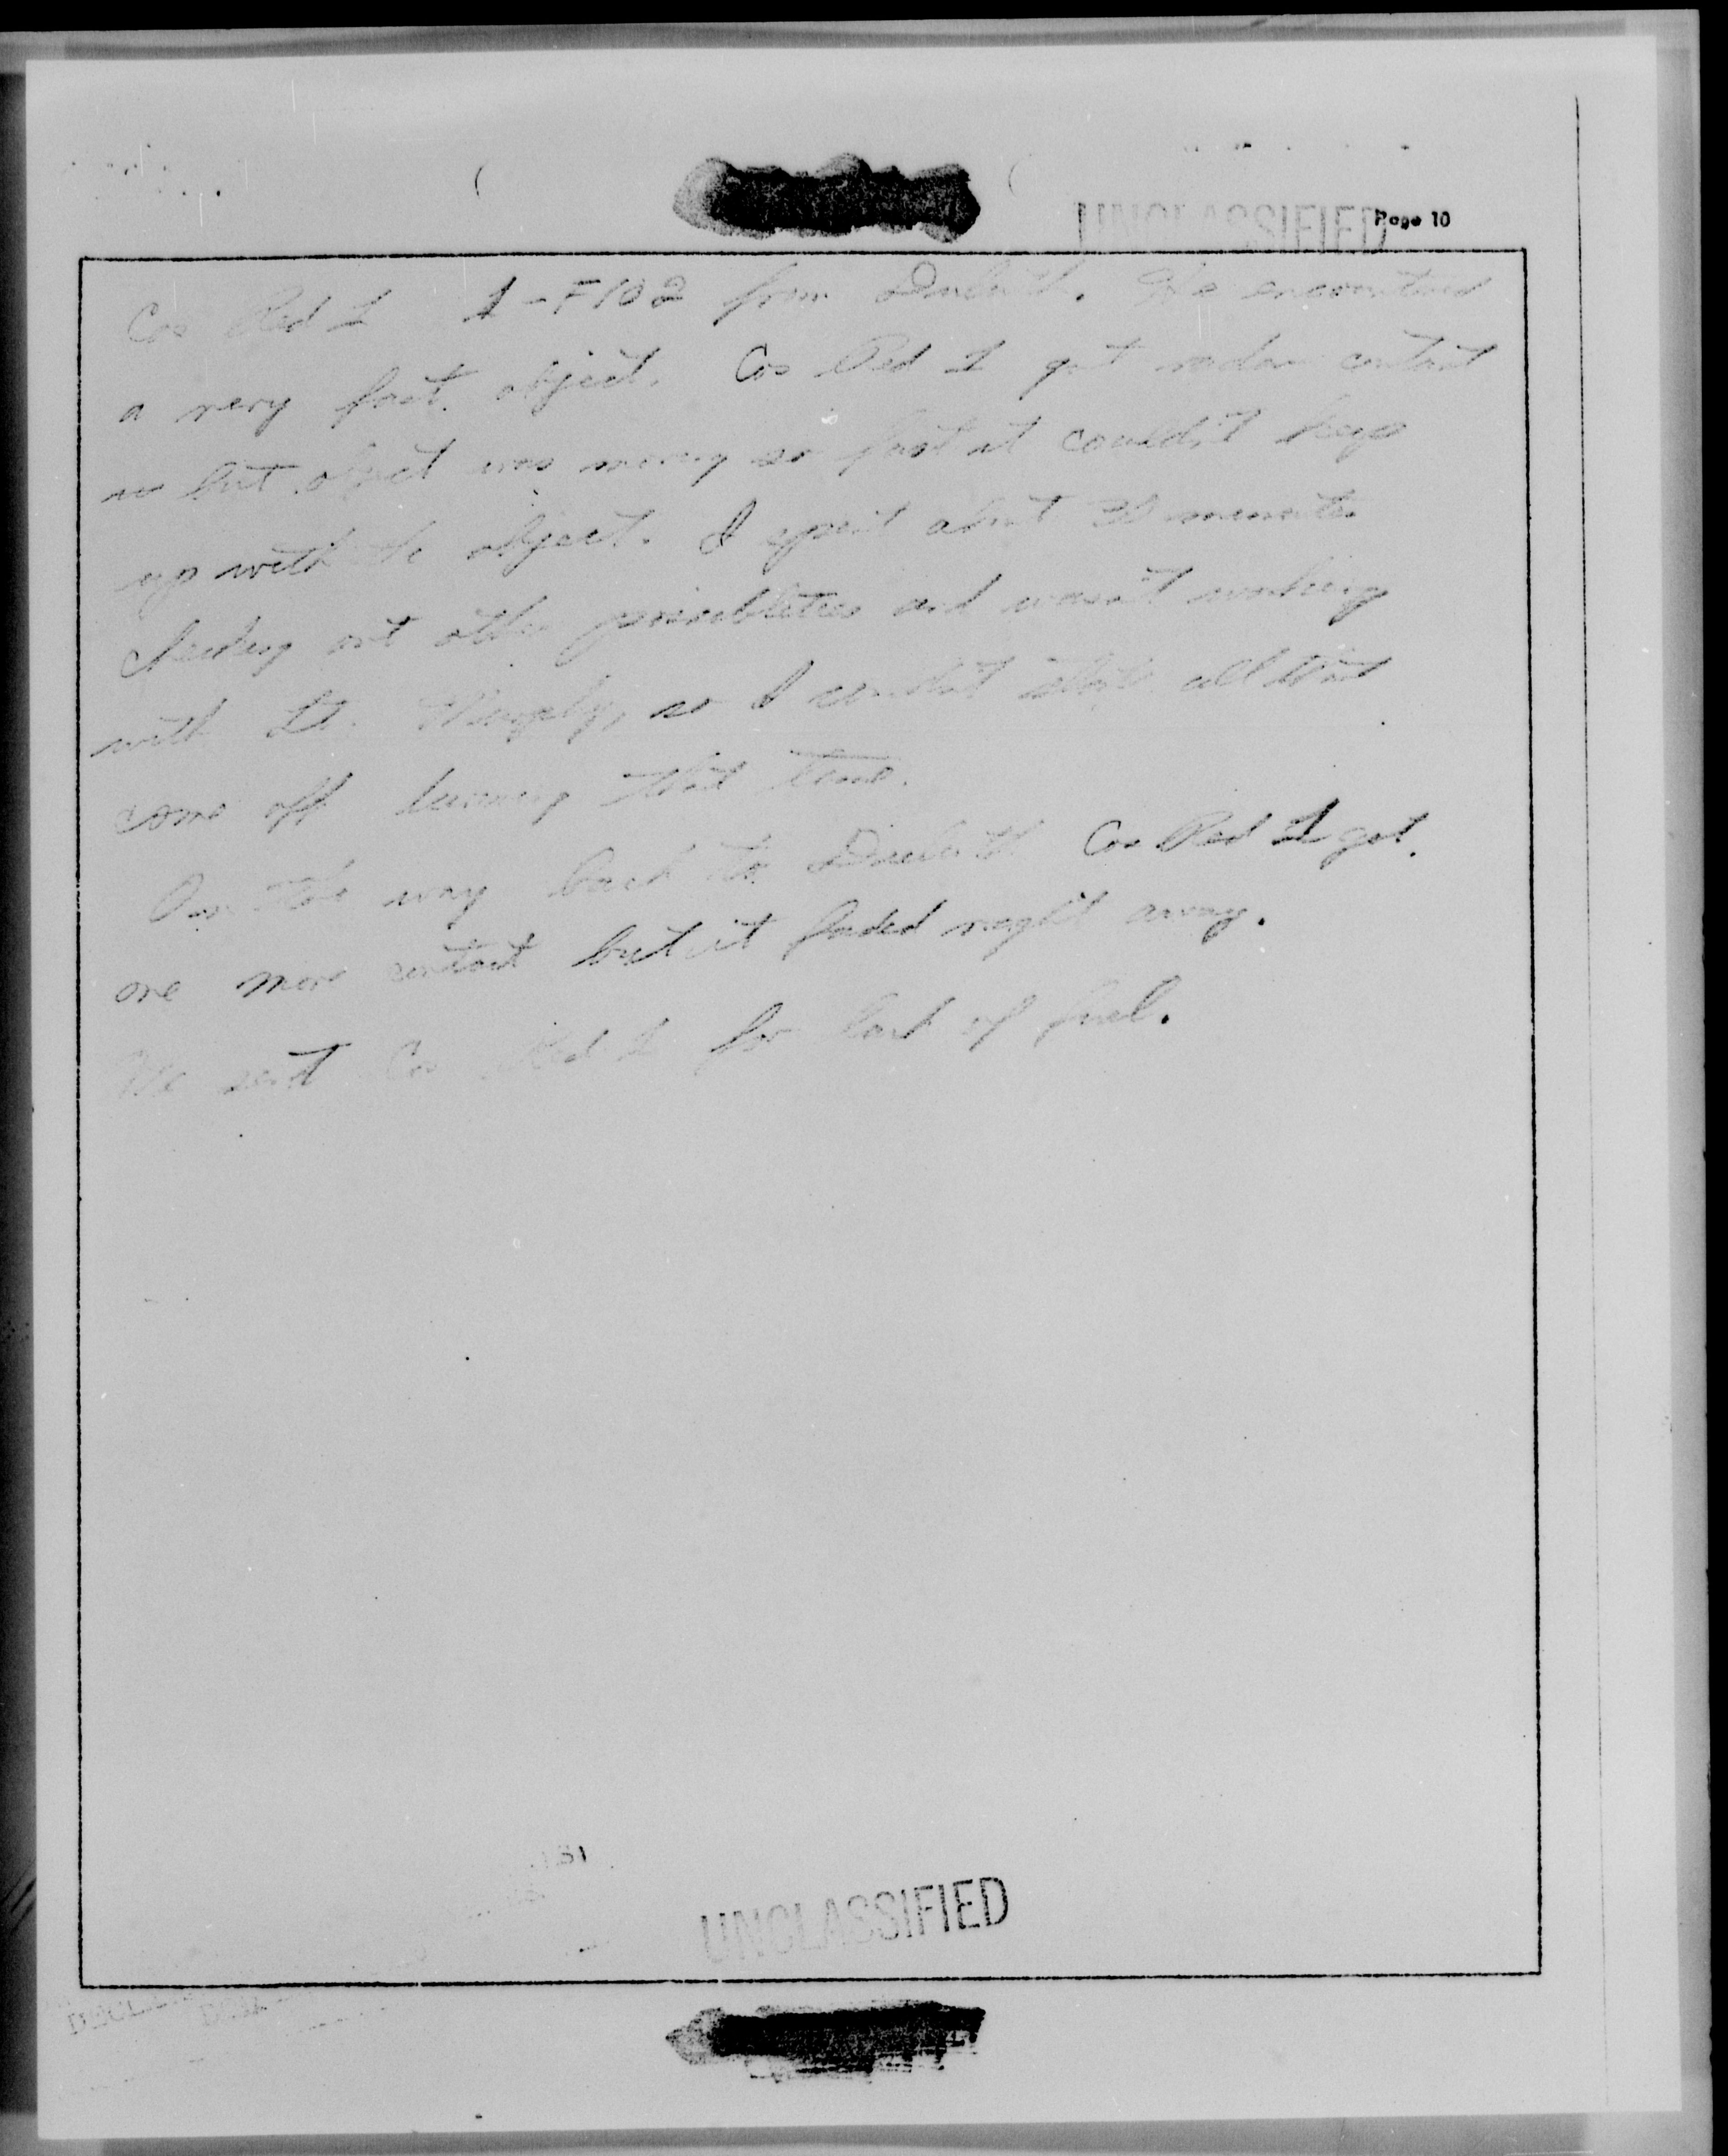 UNCLASSIFIED
Page 10
Co Red 1 1-F102 from Duluth. He encountered
a very fast object. Co Red 1 got radar contact
but object was moving so fast it couldn't keep
up with the object. I spent about 30 minutes
checking out other possiblities and wasn't working
with Lt. so I couldn't all that
come off during that time.
On the way back to Duluth Co Red 1 got
one more contact but it faded right away.
We sent Co Red 1 for lack of fuel.
UNCLASSIFIED